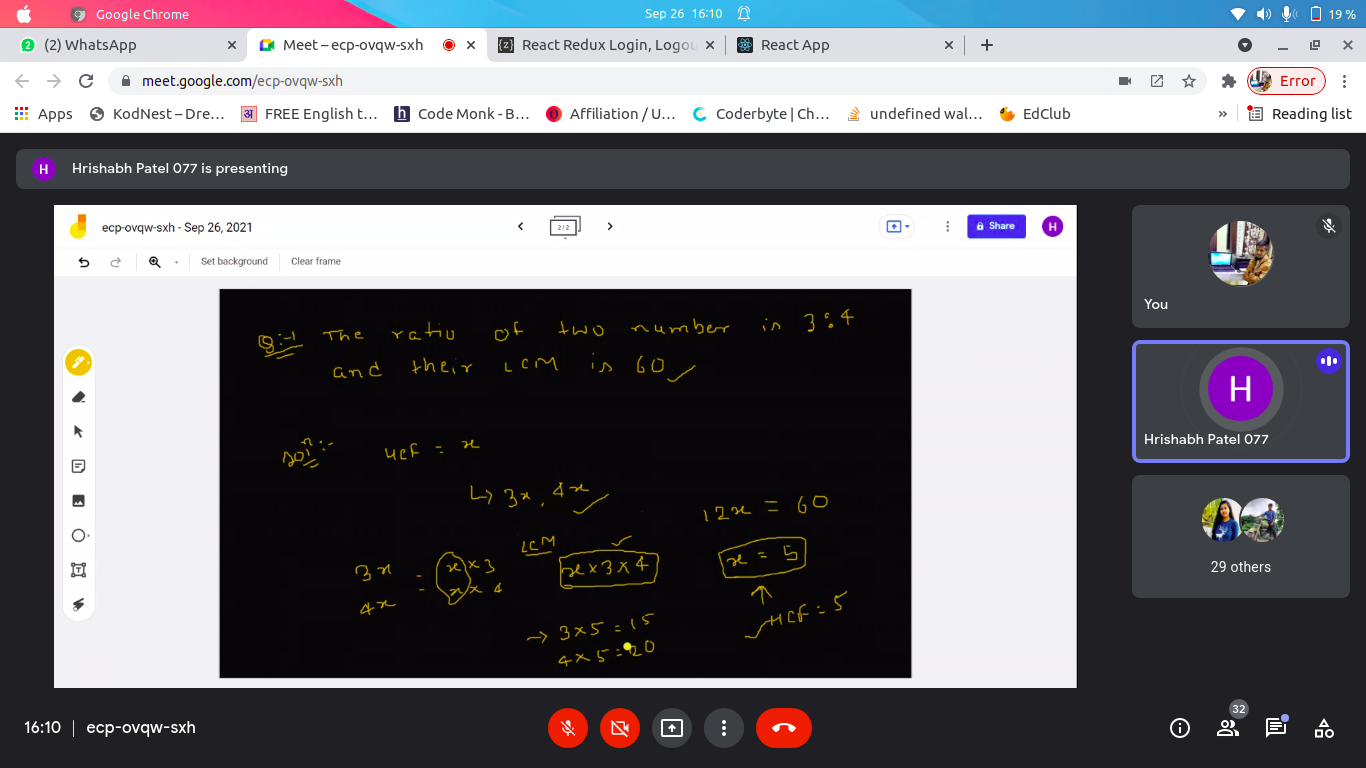 Google Chrome
Sep 26 16:10
19 %
2 (2) WhatsApp
Meet – ecp-ovqw-sxh
React Redux Login, Logou
React App
meet.google.com/ecp-ovqw-sxh
Error
Apps
KodNest – Dre…
अ FREE English t…
h Code Monk - B…
Affiliation / U…
Coderbyte | Ch…
undefined wal…
EdClub
»
Reading list
H Hrishabh Patel 077 is presenting
ecp-ovqw-sxh - Sep 26, 2021
2/2
Share
H
Set background
Clear frame
Q:-1 The ratio of two number is 3:4
and their LCM is 60
Soln:-
HCF = x
3x, 4x
12x = 60
LCM
3x = x×3
4x = x×4
x×3×4
x = 5
HCF = 5
→ 3×5 = 15
4×5 = 20
You
H
Hrishabh Patel 077
29 others
16:10 | ecp-ovqw-sxh
32